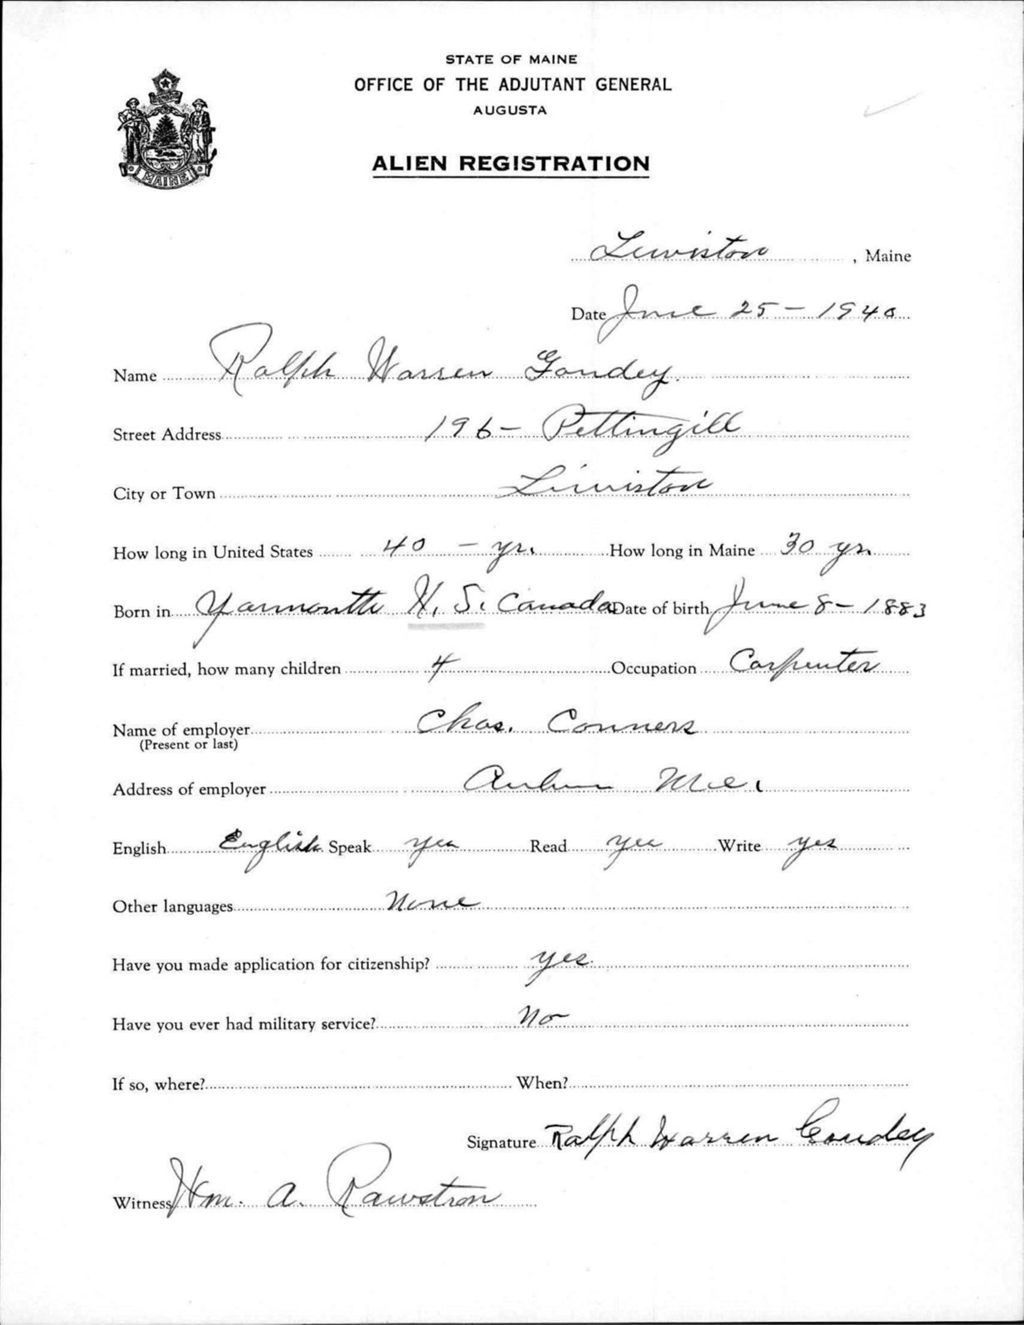 STATE OF MAINE
OFFICE OF THE ADJUTANT GENERAL
AUGUSTA
MAINE
ALIEN REGISTRATION
Lewiston, Maine
Date June 25 - 1940
Name Ralph Warren Goudey.
Street Address 196 - Pettingill
City or Town Lewiston
How long in United States 40 - yr. How long in Maine 30 yr.
Born in Yarmouth N. S. Canada Date of birth June 8 - 1883
If married, how many children 4 Occupation Carpenter
Name of employer Chas. Conners
(Present or last)
Address of employer Auburn Me.
English English Speak yes Read yes Write yes
Other languages None
Have you made application for citizenship? yes.
Have you ever had military service? No
If so, where? When?
Signature Ralph Warren Goudey
Witness Wm. A. Rawstron